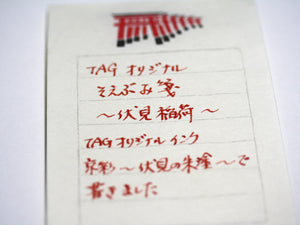 TAG オリジナル
そえぶみ箋
～伏見稲荷～
TAG オリジナルインク
京彩～伏見の朱塗～で
書きました